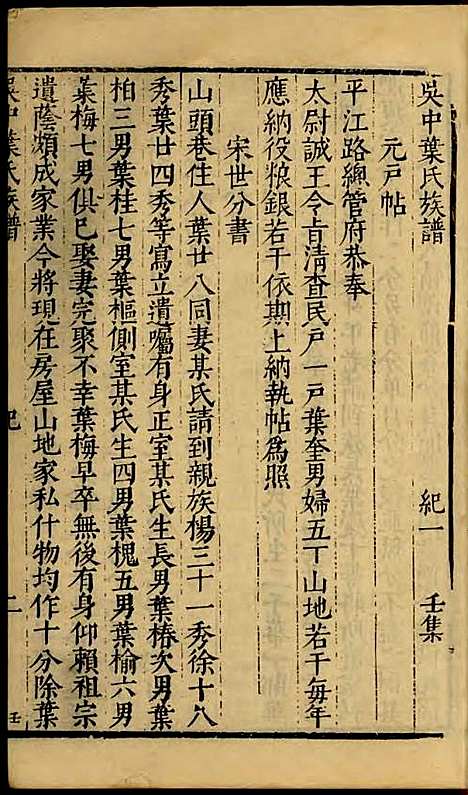 吳中葉氏族譜 紀一 壬集
元戸帖
平江路緫管府恭奉
太尉誠王令旨淸查民戸一戸葉奎男婦五丁山地若干每年
應納役粮銀若干依期上納執帖爲照
宋世分書
山頭巷住人葉廿八同妻某氏請到親族楊三十一秀徐十八
秀葉廿四秀等寫立遺囑有身正室某氏生長男葉椿次男葉
柏三男葉桂七男葉樞側室某氏生四男葉槐五男葉榆六男
葉梅七男俱已娶妻完聚不幸葉梅早卒無後有身仰賴祖宗
遺蔭頗成家業今將現在房屋山地家私什物均作十分除葉
吳中葉氏族譜 紀 二 壬